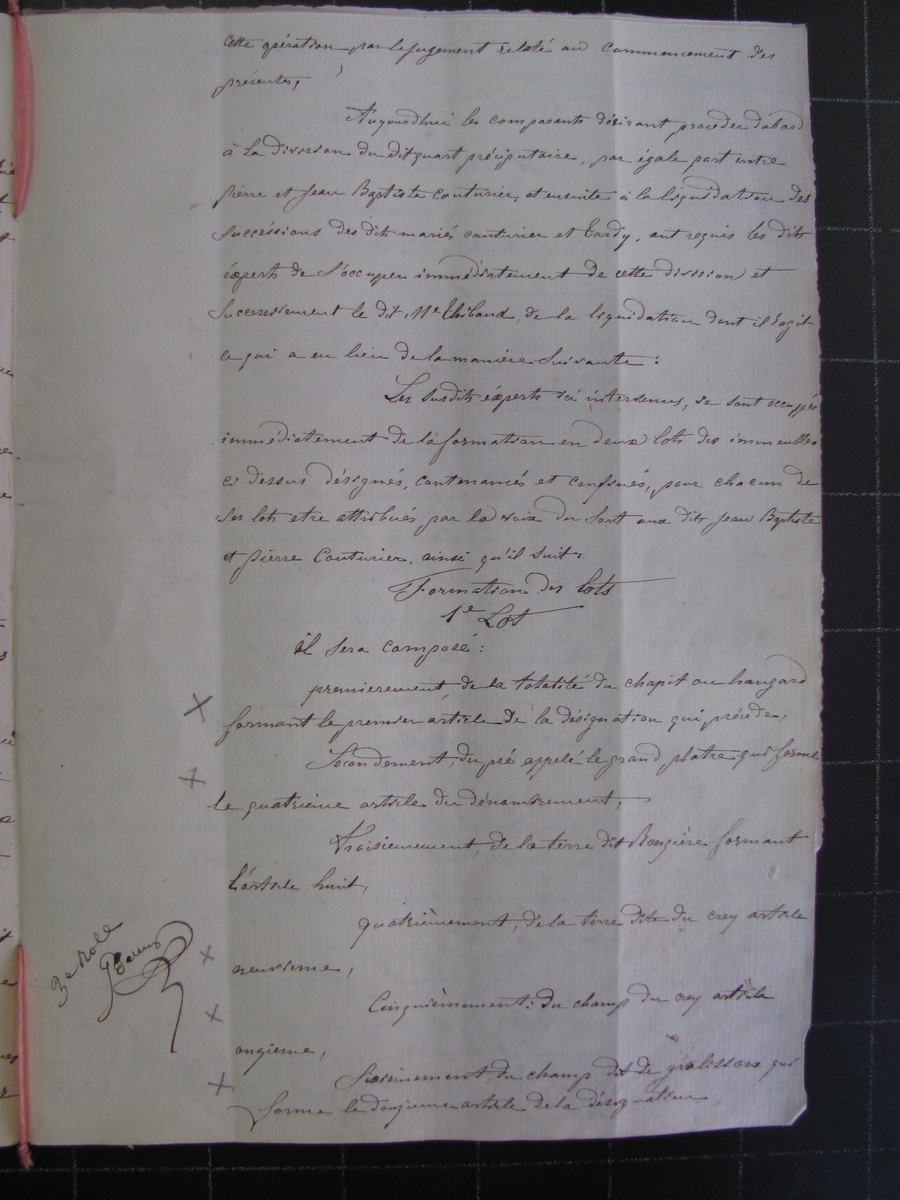 cette opération par le jugement relaté au commencement des
présentes,
Aujourdhui les comparants désirant procéder dabord
à la division du dit quart préciputaire, par égale part entre
pierre et Jean Baptiste couturier, et ensuite à la liquidation des
successions des dits mariés couturier et Tardy, ont requis les dits
éxperts de s'occuper immédiatement de cette division et
successivement le dit Me Thibaud, de la liquidation dont il s'agit
ce qui a eu lieu de la manière suivante :
Les susdits éxperts ici intervenus, se sont occuppés
immédiatement de la formation en deux lots des immeubles
ci dessus désignés, contenancés et confinés, pour chacun de
ses lots etre attribués par la voix du sort aux dits Jean Baptiste
et pierre Couturier, ainsi qu'il suit.
Formation des lots
1e Lot
il sera composé :
premierement de la totalité du chapit ou hangard
formant le premier article de la désignation qui précède,
Secondement, du pré appelé le grand platre qui forme
le quatrième article du dénombrement,
Troisiemement, de la terre dit Rongière formant
l'article huit,
quatrièmement, de la terre dite du crey article
neuvieme,
Cinquièmement : du champ du crey article
onzieme,
Sixiemement, du champ dit de
qui
forme le douzieme article de la désignation
3e Role